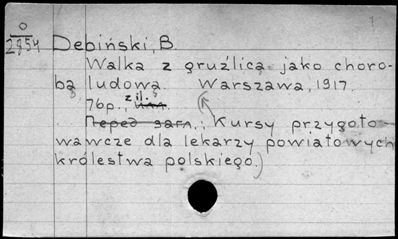 0
2854 Dębiński, B.
Walka z gruźlicą jako choro-
bą ludową. Warszawa, 1917.
76p., z il.
Перед загл.: Kursy przygoto-
wawcze dla lekarzy powiatowych
królestwa polskiego.)